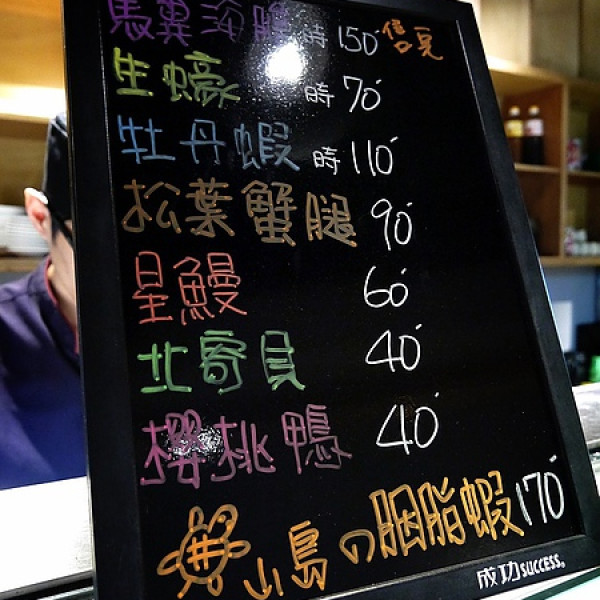 馬糞海膽 時 150 售完
生蠔 時 70
牡丹蝦 時 110
松葉蟹腿 90
星鰻 60
北寄貝 40
櫻桃鴨 40
山島の胭脂蝦 170
成功 SUCCESS®